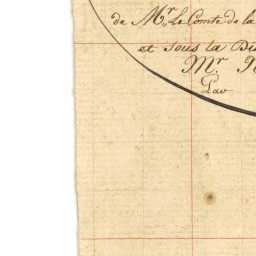 de Mr. Le Comte de la
et sous la Di
Mr.
Par